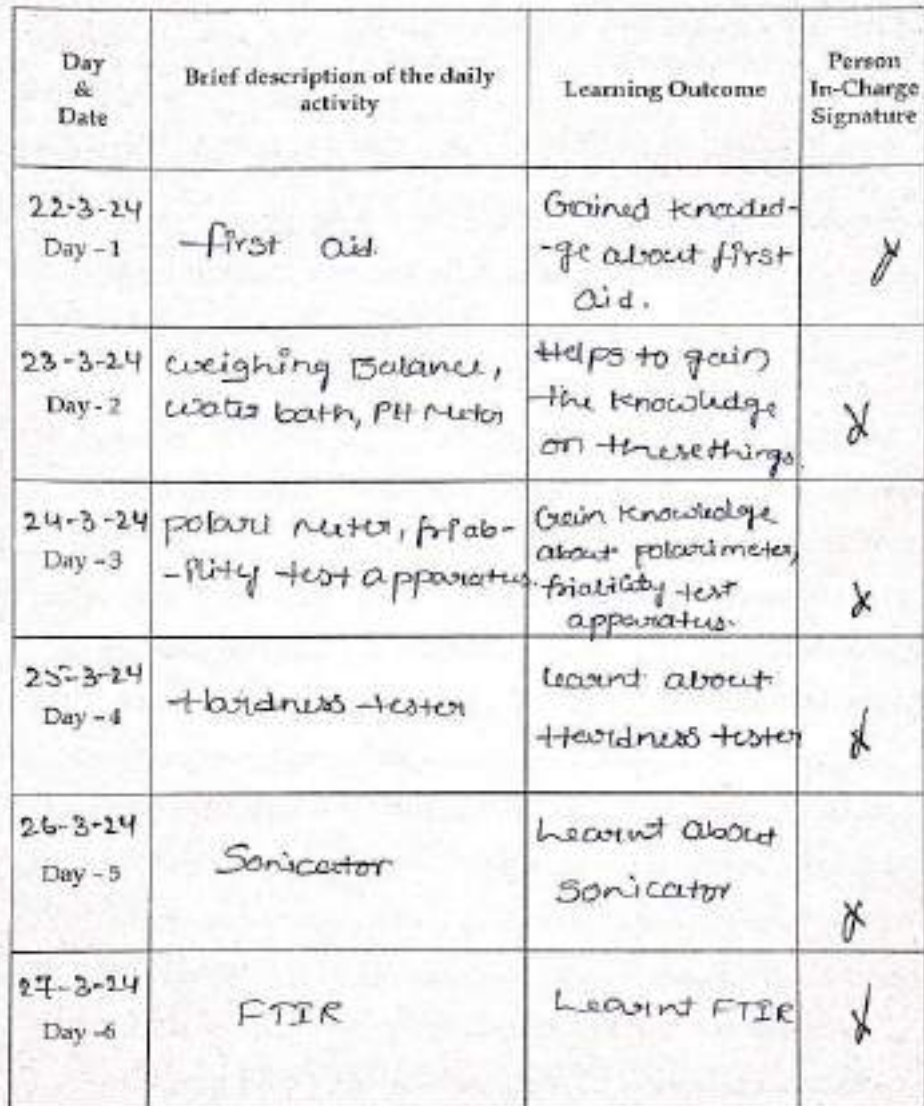 Day
&
Date
Brief description of the daily
activity
Learning Outcome
Person
In-Charge
Signature
22-3-24
Day - 1
first aid.
Grained knowled-
-ge about first
aid.
23-3-24
Day - 2
weighing Balance,
water bath, PH Meter
Helps to gain
the knowledge
on these things.
24-3-24
Day - 3
polari meter, friab-
-ility test apparatus.
Gain knowledge
about polarimeter,
friability test
apparatus.
25-3-24
Day - 4
Hardness tester
learnt about
Hardness tester
26-3-24
Day - 5
Sonicator
Learnt about
Sonicator
27-3-24
Day -6
FTIR
Learnt FTIR